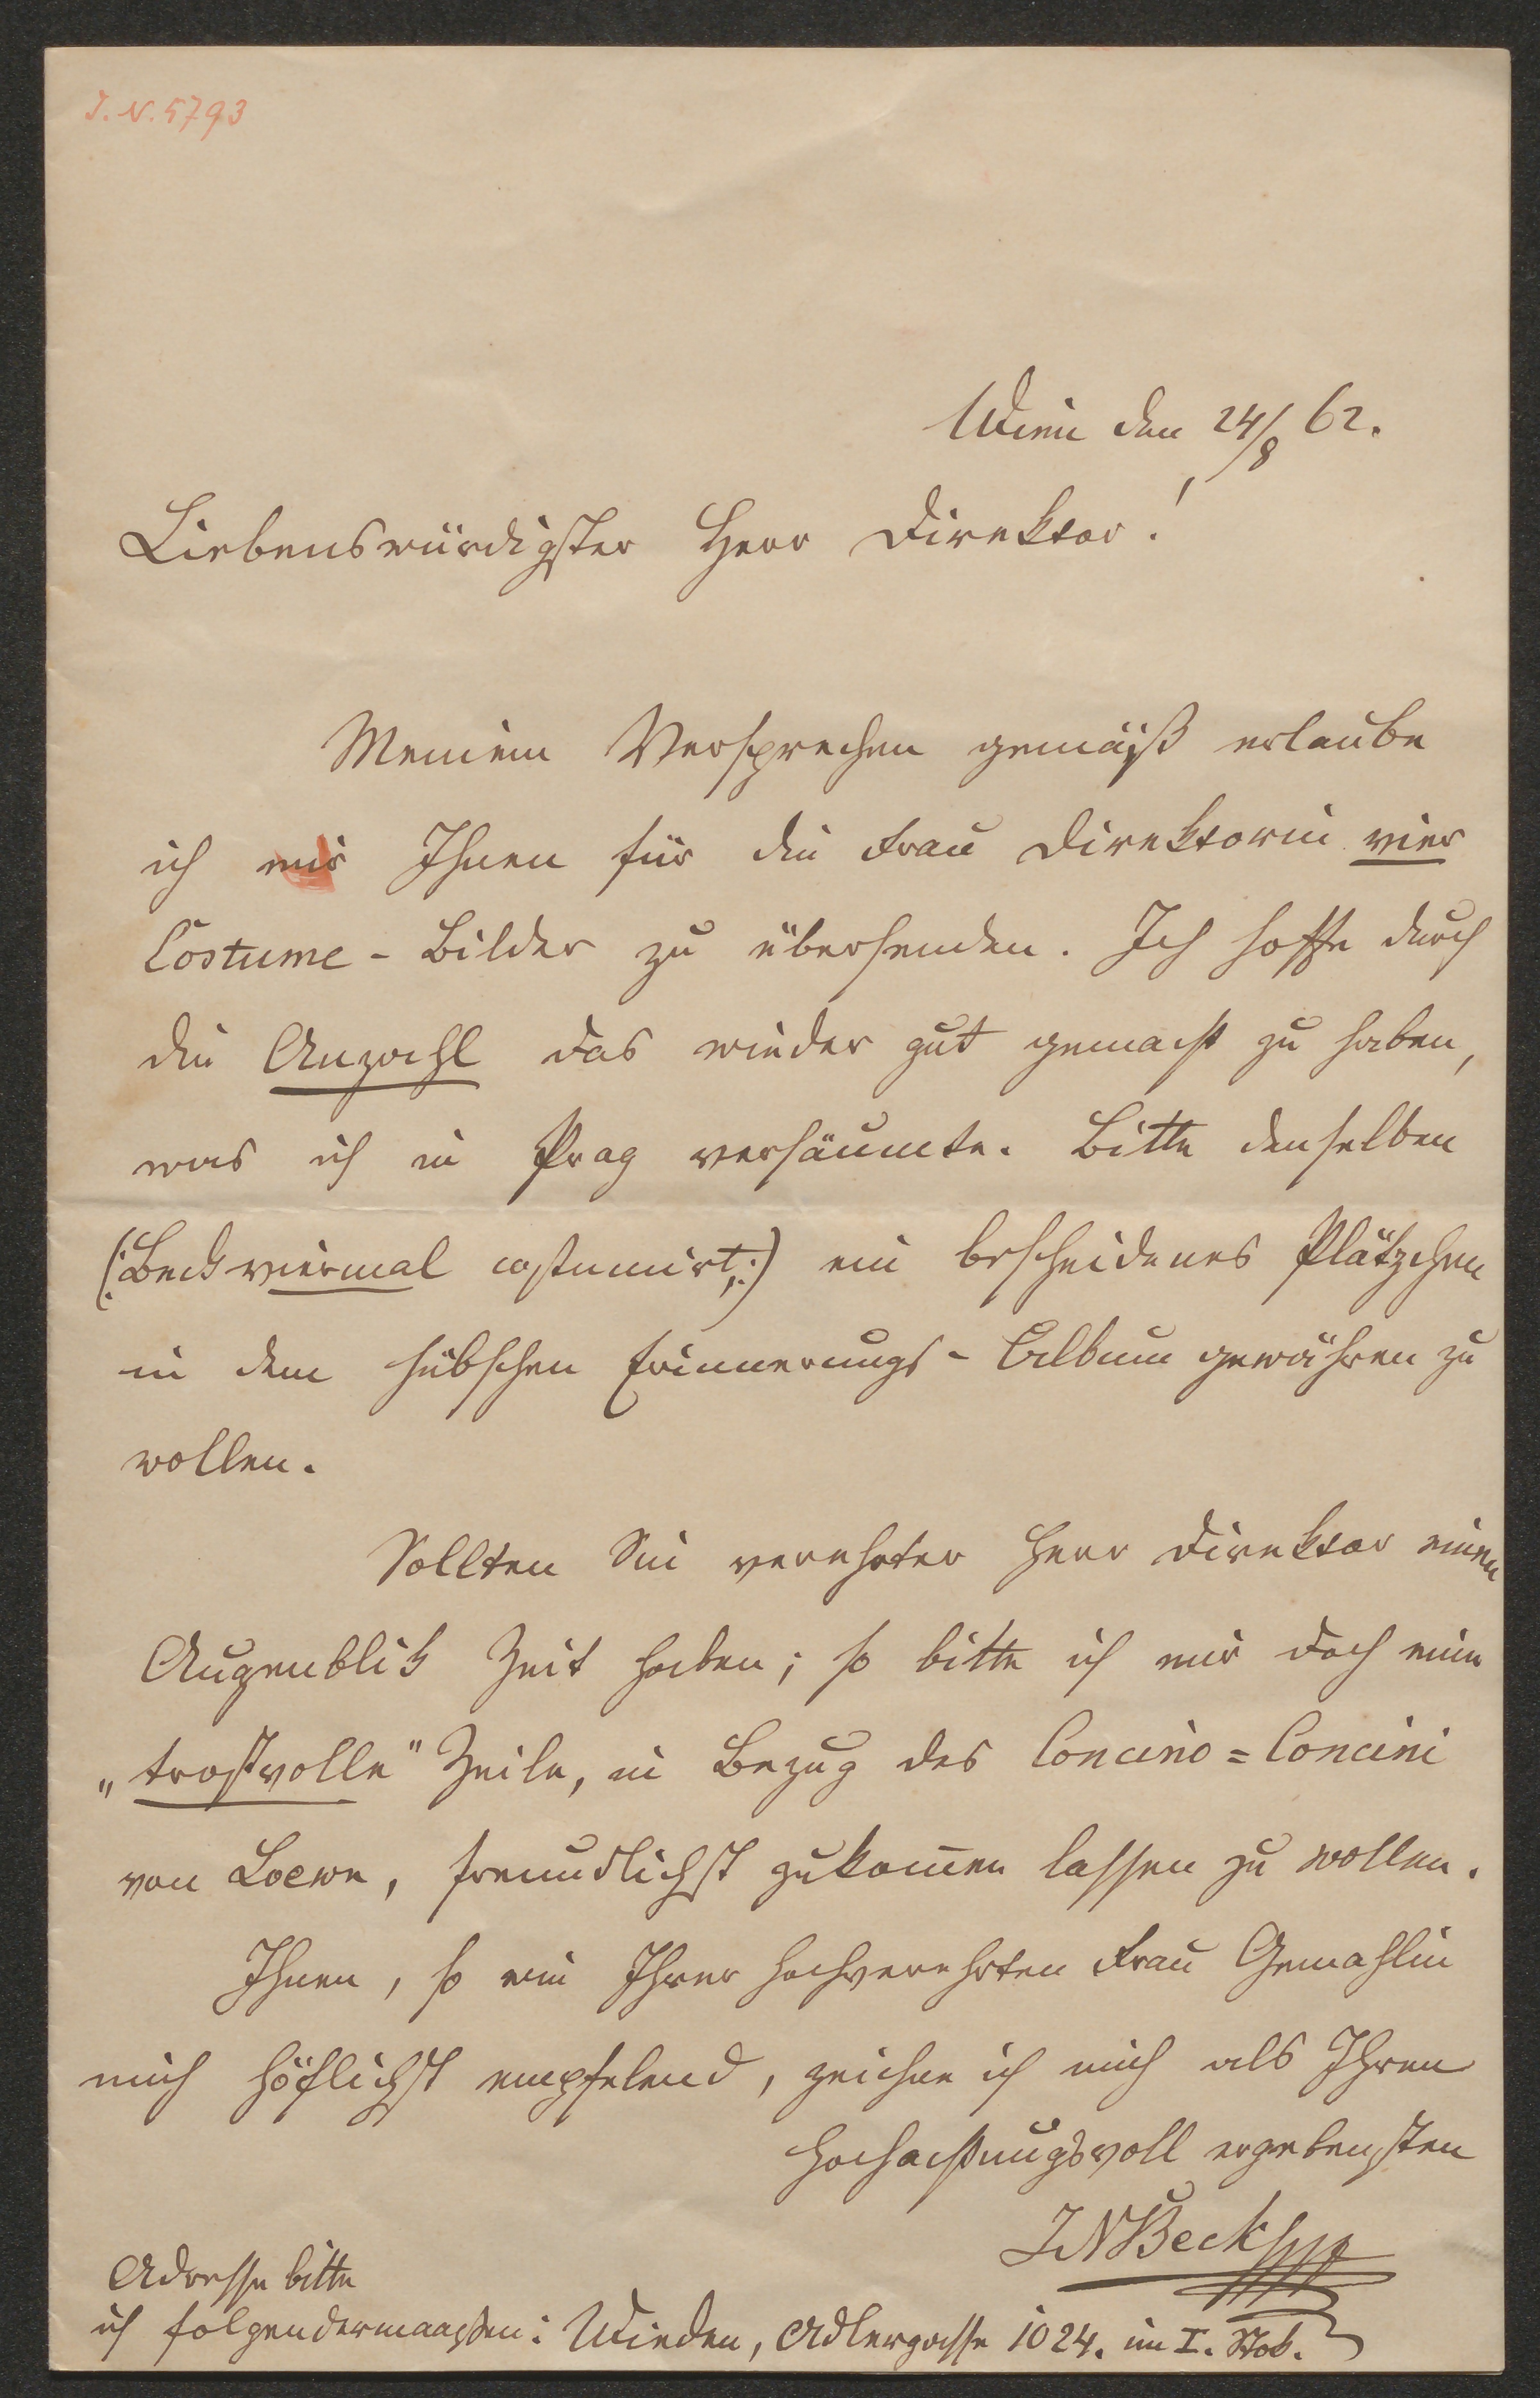 J. N. 5793
Wien den 24/8 62.
Liebenswürdigster Herr Direktor!
Meinem Versprechen gemäß erlaube
ich mir Ihnen für die Frau Direktorin vier
Costume - Bilder zu übersenden. Ich hoffe durch
die Anzahl das wieder gut gemacht zu haben,
was ich in Prag versäumte. Bitte denselben
(:Beck viermal costumirt,:) ein bescheidenes Plätzchen
in dem hübschen Erinnerungs - Album gewähren zu
wollen.
Sollten Sie verehrter Herr Direktor einen
Augenblick Zeit haben; so bitte ich mir doch eine
„trostvolle" Zeile, in Bezug des Concino = Concini
von Loewe, freundlichst zukom̅en lassen zu wollen.
Ihnen, so wie Ihrer hochverehrten Frau Gemahlin
mich höflichst empfelend, zeichne ich mich als Ihren
hochachtungsvoll ergebensten
JNBeck
Adresse bitte
ich folgendermaaßen: Wieden, Adlergasse 1024. im I. Stok.